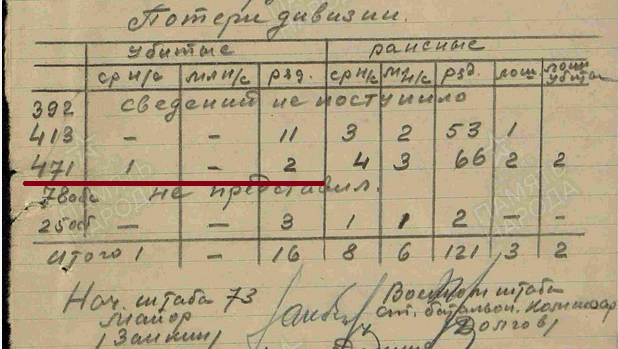 Потери дивизии.
убитые раненые
ср н/с мл н/с ряд. ср н/с мл н/с ряд. лош. лош убитые
392 сведений не поступило
413 – – 11 3 2 53 1
471 1 – 2 4 3 66 2 2
78 не представил.
25 – – 3 1 1 2 – –
итого 1 – 16 8 6 121 3 2
Нач. штаба 73 Военком штаба
майор ст. батальон. комиссар
/Заикин/ /Долгов/
ПАМЯТЬ НАРОДА